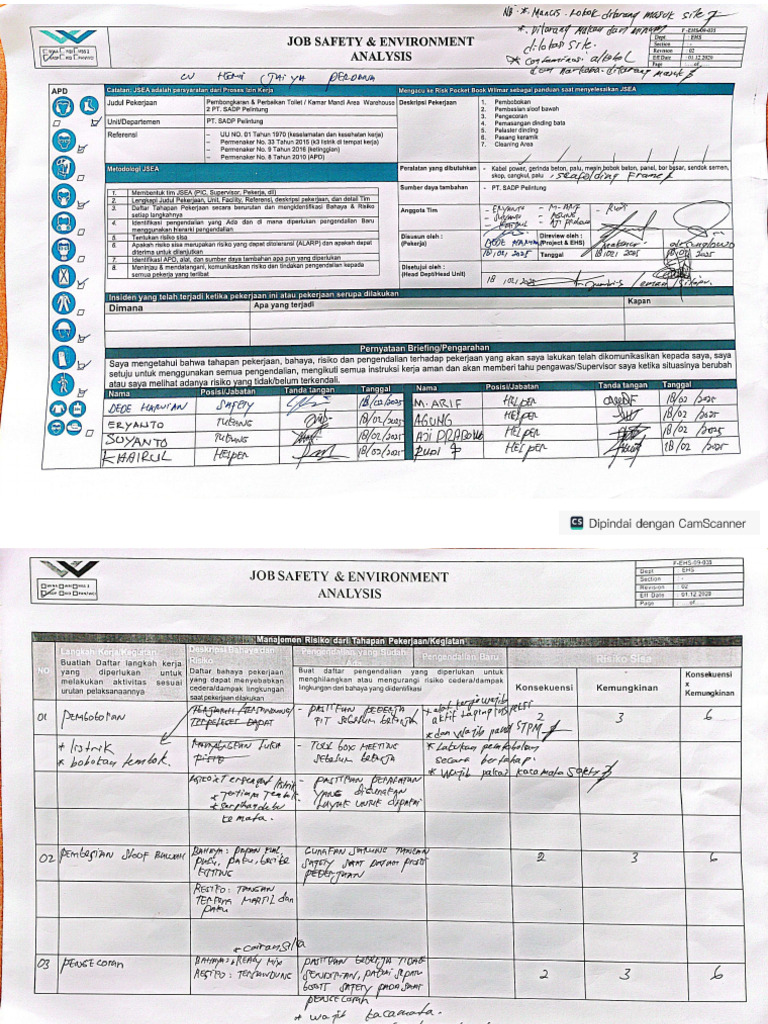 NB : * Mancis . Rokok dilarang masuk site
* Dilarang makan dan minum
dilokasi site.
JOB SAFETY & ENVIRONMENT
ANALYSIS
F-EHS-09-038
Dept : EHS
Section : -
Revision : 02
Eff Date : 01.12.2020
Page : ...of...
APD
Catatan: JSEA adalah persyaratan dari Proses Izin Kerja
Mengacu ke Risk Pocket Book Wilmar sebagai panduan saat menyelesaikan JSEA
Judul Pekerjaan
Pembongkaran & Perbaikan Toilet / Kamar Mandi Area Warehouse
2 PT. SADP Pelintung
Unit/Departemen
PT. SADP Pelintung
Referensi
– UU NO. 01 Tahun 1970 (keselamatan dan kesehatan kerja)
– Permenaker No. 33 Tahun 2015 (k3 listrik di tempat kerja)
– Permenaker No. 9 Tahun 2016 (ketinggian)
– Permenaker No. 8 Tahun 2010 (APD)
Deskripsi Pekerjaan
1. Pembobokan
2. Pembasian sloof bawah
3. Pengecoran
4. Pemasangan dinding bata
5. Pelaster dinding
6. Pasang keramik
7. Cleaning Area
Metodologi JSEA
1. Membentuk tim JSEA (PIC, Supervisor, Pekerja, dll)
2. Lengkapi Judul Pekerjaan, Unit, Facility, Referensi, deskripsi pekerjaan, dan detail Tim
3. Daftar Tahapan Pekerjaan secara berurutan dan mengidentifikasi Bahaya & Risiko
setiap langkahnya
4. Identifikasi pengendalian yang Ada dan di mana diperlukan pengendalian Baru
menggunakan hierarki pengendalian
5. Tentukan risiko sisa
6. Apakah risiko sisa merupakan risiko yang dapat ditoleransi (ALARP) dan apakah dapat
diterima untuk dilanjutkan
7. Identifikasi APD, alat, dan sumber daya tambahan apa pun yang diperlukan
8. Meninjau & mendatangani, komunikasikan risiko dan tindakan pengendalian kepada
semua pekerja yang terlibat
Peralatan yang dibutuhkan
– Kabel power, gerinda beton, palu, mesin bobok beton, panel, bor besar, sendok semen,
skop, cangkul, palu
Sumber daya tambahan
– PT. SADP Pelintung
Anggota Tim
- ERYANTO - M. ARIF - RUDI
- SUYANTO - AGUNG
- KHAIRUL - AJI PRABOWO
Disusun oleh :
(Pekerja)
DEDE HARUTAN
18/02/2025
Direview oleh :
(Project & EHS)
Tanggal
18/02/2025
Disetujui oleh :
(Head Dept/Head Unit)
18/02/2025
Insiden yang telah terjadi ketika pekerjaan ini atau pekerjaan serupa dilakukan
Dimana
Apa yang terjadi
Kapan
Pernyataan Briefing/Pengarahan
Saya mengetahui bahwa tahapan pekerjaan, bahaya, risiko dan pengendalian terhadap pekerjaan yang akan saya lakukan telah dikomunikasikan kepada saya, saya
setuju untuk menggunakan semua pengendalian, mengikuti semua instruksi kerja aman dan akan memberi tahu pengawas/Supervisor saya ketika situasinya berubah
atau saya melihat adanya risiko yang tidak/belum terkendali.
Nama Posisi/Jabatan Tanda tangan Tanggal Nama Posisi/Jabatan Tanda tangan Tanggal
DEDE HARUTAN SAFETY 18/02/2025 M. ARIF HELPER 18/02/2025
ERYANTO TUKANG 18/02/2025 AGUNG HELPER 18/02/2025
SUYANTO TUKANG 18/02/2025 AJI PRABOWO HELPER 18/02/2025
KHAIRUL HELPER 18/02/2025 RUDI HELPER 18/02/2025
CS Dipindai dengan CamScanner
JOB SAFETY & ENVIRONMENT
ANALYSIS
F-EHS-09-038
Dept : EHS
Section : -
Revision : 02
Eff Date : 01.12.2020
Page : ...of...
Manajemen Risiko dari Tahapan Pekerjaan/Kegiatan
NO
Langkah Kerja/Kegiatan
Buatlah Daftar langkah kerja
yang diperlukan untuk
melakukan aktivitas sesuai
urutan pelaksanaannya
Deskripsi Bahaya dan
Risiko
Daftar bahaya pekerjaan
yang dapat menyebabkan
cedera/dampak lingkungan
saat pekerjaan dilakukan
Pengendalian yang Sudah
Ada
Pengendalian Baru
Buat daftar pengendalian yang diperlukan untuk
menghilangkan atau mengurangi risiko cedera/dampak
lingkungan dari bahaya yang diidentifikasi
Risiko Sisa
Konsekuensi
Kemungkinan
Konsekuensi
x
Kemungkinan
01 PEMBOBOKAN
* listrik
* bobokan tembok.
- PASTIKAN PEKERJA
FIT SEBELUM BEKERJA
- TOOL BOX MEETING
SEBELUM BEKERJA
- PASTIKAN PERALATAN
YANG DIGUNAKAN
LAYAK UNTUK DIPAKAI
* dan wajib pakai
* Lakukan pembobokan
secara bertahap.
* Wajib pakai kacamata safety
2 3 6
ke mata.
02 PEMBESIAN SLOOF BAWAH
GUNAKAN SARUNG TANGAN
SAFETY SAAT DALAM PROSES
PEKERJAAN
RESIKO : TANGAN
TERKENA MARTIL dan
PAKU
2 3 6
03 PENGECORAN
BAHAYA : READY MIX
RESIKO : TERKANDUNG
PASTIKAN BEKERJA TIDAK
SENDIRIAN, PAKAI SEPATU
BOOTS SAFETY PADA SAAT
PENGECORAN
* wajib kacamata.
2 3 6